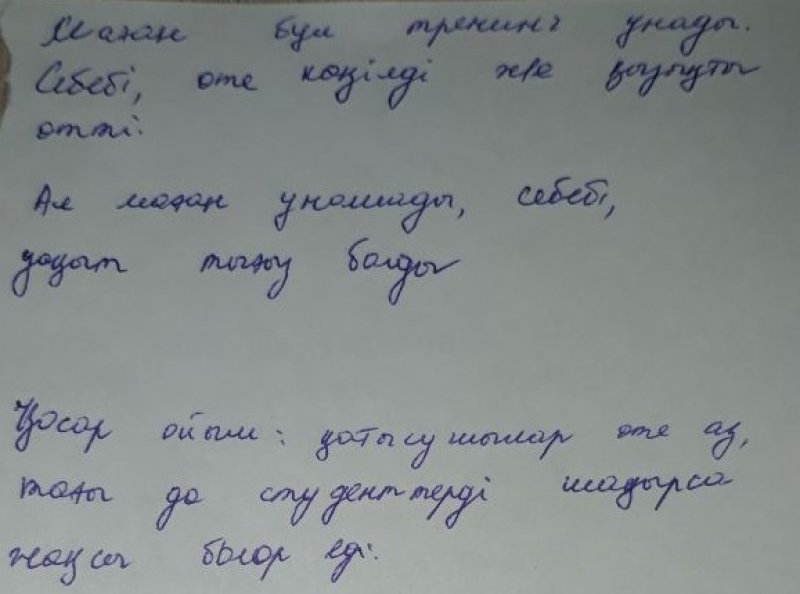 Маған бұл тренинг ұнады.
Себебі, өте көңілді әрі қызықты
өтті.
Ал маған ұнамады, себебі,
уақыт тығыз болды
Қосар ойым: қатысушылар өте аз,
тағы да студенттерді шақырса
жақсы болар еді.